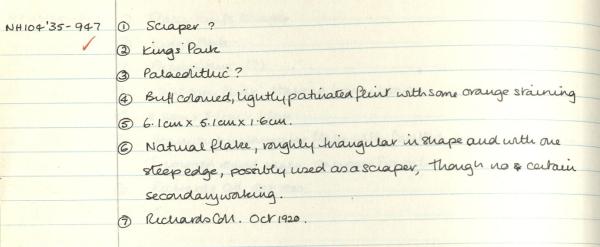 NH104'35-947 ① Scraper ?
② Kings' Park
③ Palaeolithic ?
④ Buff coloured, lightly patinated flint with some orange staining
⑤ 6.1cm x 5.1cm x 1.6cm.
⑥ Natural flake, roughly triangular in shape and with one
steep edge, possibly used as a scraper, though no certain
secondary working.
⑦ Richards Coll. Oct 1920.